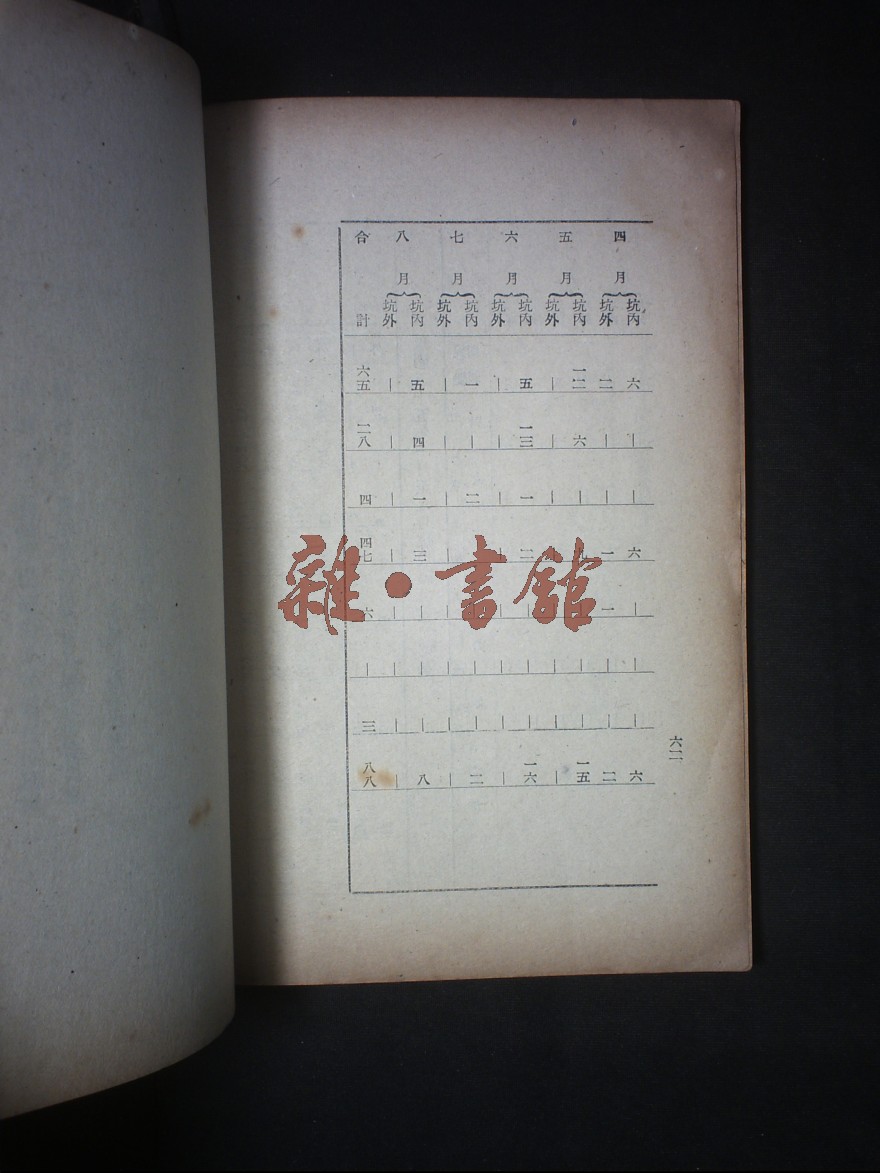 四月 五月 六月 七月 八月 合計
坑內 坑外 坑內 坑外 坑內 坑外 坑內 坑外 坑內 坑外
六 二 一二 | 五 | 一 | 五 | 六五
| | 六 | 一三 | | | 四 | 二八
| | | | 一 | 二 | 一 | 四
六 一 二 三 四七
一 六
| | | | | | | | | | |
| | | | | | | | | | 三
六 二 一五 | 一六 | 二 | 八 | 八八
六二
雜·書館